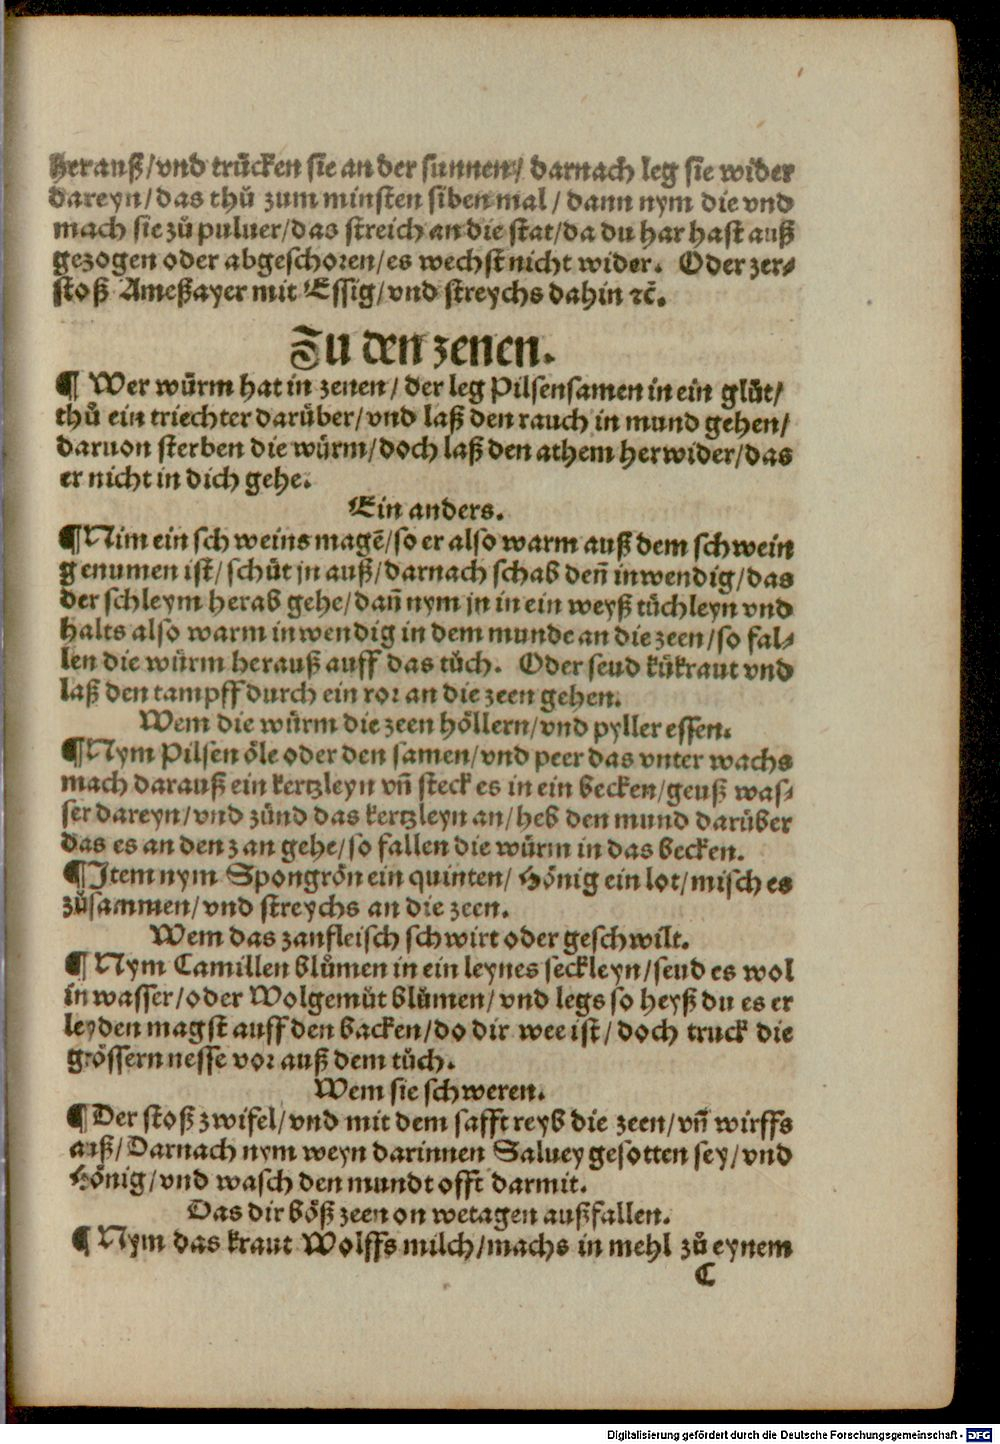 herauß/vnd trücken sie an der sunnen/ darnach leg sie wider
dareyn/das thů zum minsten siben mal/ dann nym die vnd
mach sie zů puluer/das streich an die stat/da du har hast auß
gezogen oder abgeschoren/es wechst nicht wider. Oder zer⸗
stoß Ameßayer mit Essig/vnd streychs dahin ꝛc̃.
Zu den zenen.
¶ Wer würm hat in zenen/ der leg Pilsensamen in ein glůt/
thů ein triechter darüber/vnd laß den rauch in mund gehen/
daruon sterben die würm/doch laß den athem herwider/das
er nicht in dich gehe.
Ein anders.
¶ Nim ein schweins magẽ/so er also warm auß dem schwein
genumen ist/ schüt jn auß/darnach schab den̄ inwendig/das
der schleym herab gehe/dan̄ nym jn in ein weyß tüchleyn vnd
halts also warm inwendig in dem munde an die zeen/so fal⸗
len die würm herauß auff das tůch. Oder seud kükraut vnd
laß den tampff durch ein ror an die zeen gehen.
Wem die würm die zeen höllern/vnd pyller essen.
¶ Nym Pilsen öle oder den samen/vnd peer das vnter wachs
mach darauß ein kertzleyn vn̄ steck es in ein becken/geuß was⸗
ser dareyn/vnd zünd das kertzleyn an/heb den mund darüber
das es an den zan gehe/so fallen die würm in das becken.
¶ Item nym Spongrön ein quinten/ Hönig ein lot/misch es
zůsammen/vnd streychs an die zeen.
Wem das zanfleisch schwirt oder geschwilt.
¶ Nym Camillen blůmen in ein leynes seckleyn/seud es wol
in wasser/oder Wolgemůt blůmen/vnd legs so heyß du es er
leyden magst auff den backen/do dir wee ist/ doch truck die
grössern nesse vor auß dem tůch.
Wem sie schweren.
¶ Der stoß zwifel/vnd mit dem safft reyb die zeen/vn̄ wirffs
auß/Darnach nym weyn darinnen Saluey gesotten sey/vnd
Hönig/vnd wasch den mundt offt darmit.
Das dir böß zeen on wetagen außfallen.
¶ Nym das kraut Wolffs milch/machs in mehl zů eynem
C
Digitalisierung gefördert durch die Deutsche Forschungsgemeinschaft - DFG